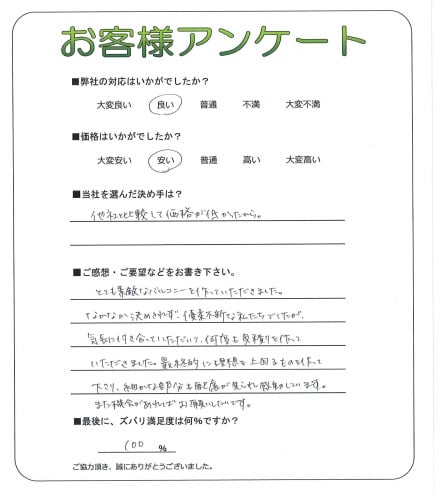 お客様アンケート
■弊社の対応はいかがでしたか？
大変良い 良い 普通 不満 大変不満
■価格はいかがでしたか？
大変安い 安い 普通 高い 大変高い
■当社を選んだ決め手は？
他社比較して価格が低かったから。
■ご感想・ご要望などをお書き下さい。
とても素敵なバルコニーを作っていただきました。
なかなか決められず、優柔不断な私たちでしたが、
気長に付き合っていただいて、何度も見積りを作って
いただきました。最終的にも理想を上回るものを作って
下さり、細かな部分も配慮が見られ感動しています。
また機会があればお願いしたいです。
■最後に、ズバリ満足度は何％ですか？
100 %
ご協力頂き、誠にありがとうございました。